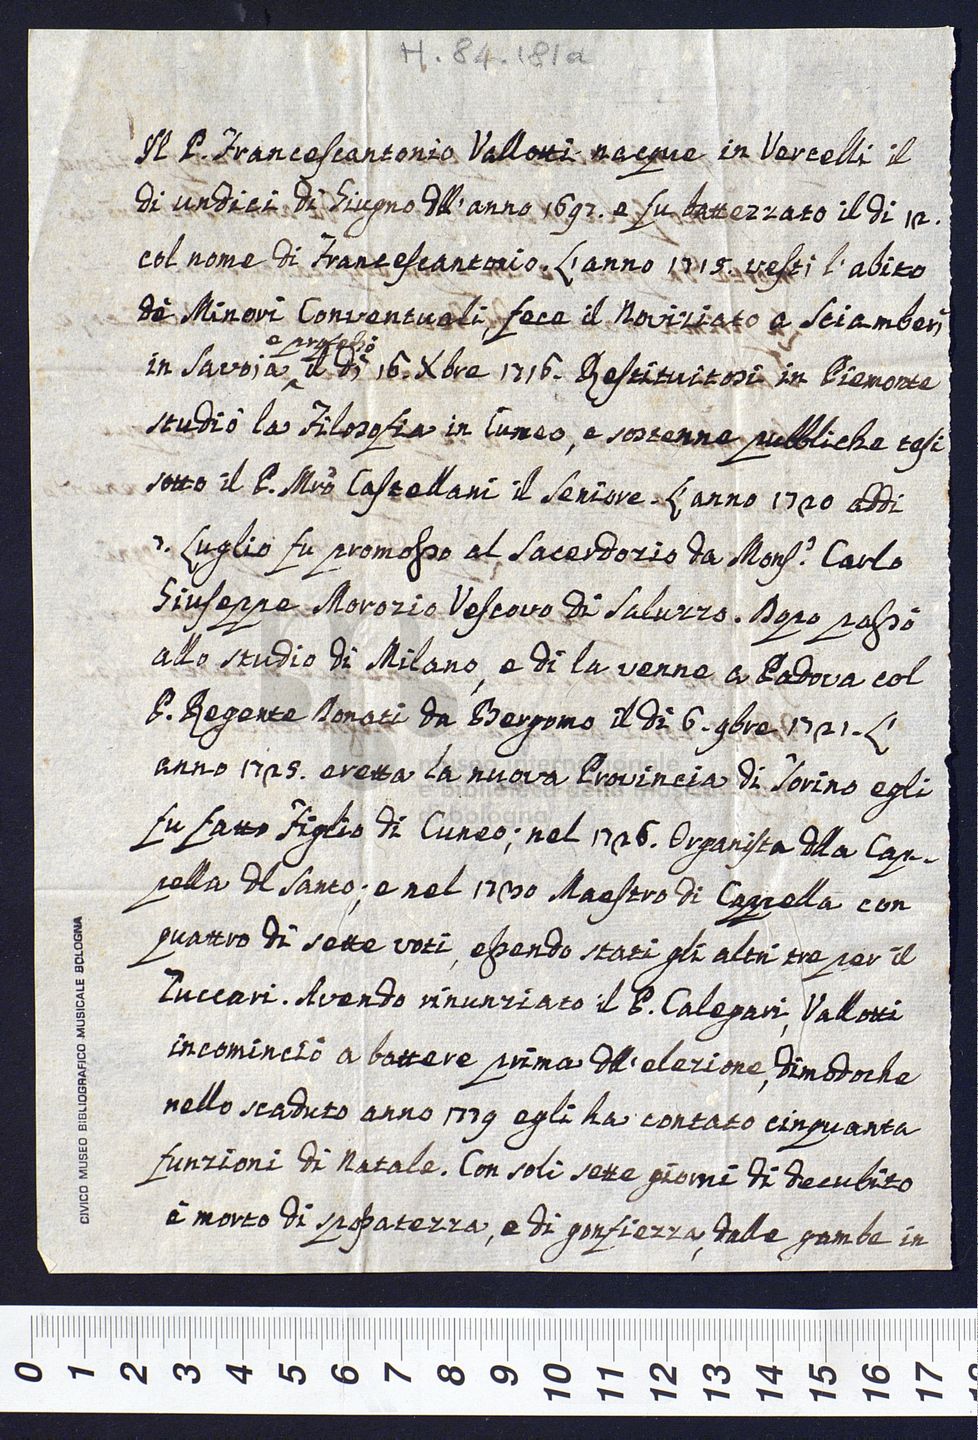 H. 84. 181a
Il P. Francescantonio Vallotti nacque in Vercelli il
di undici di Giugno dll'anno 1697. e fu battezzato il di 12.
col nome di Francescantonio. L'anno 1715. vestì l'abito
dè Minori Conventuali, fece il Noviziato a Sciamberì
e professò
in Savoja il dì 16. Xbre 1716. Restituitosi in Piemonte
studiò la Filosofia in Cuneo, e sostenne pubbliche tesi
sotto il P. Mrõ Castellani il Seniore. L'anno 1720 addi
7. Luglio fu promosso al Sacerdozio da Mons.r Carlo
Giuseppe Morozio Vescovo di Saluzzo. Dopo passò
allo studio di Milano, e di la venne a Padova col
P. Regente Donati da Bergomo il dì 6. 9bre 1721. L'
anno 1725. eretta la nuova Provincia di Torino egli
fu fatto Figlio di Cuneo; nel 1726. Organista dlla Cap-
pella dl Santo; e nel 1730 Maestro di Cappella con
quattro di sette voti, essendo stati gli altri tre per il
Zuccari. Avendo rinunziato il P. Calegari, Vallotti
incominciò a battere prima dll'elezione, dimodoche
nello scaduto anno 1779 egli ha contato cinquanta
funzioni di Natale. Con soli sette giorni di decubito
è morto di spossatezza, e di gonfiezza, dalle gambe in
CIVICO MUSEO BIBLIOGRAFICO MUSICALE BOLOGNA
museo internazionale
e biblioteca della musica
di bologna
0 1 2 3 4 5 6 7 8 9 10 11 12 13 14 15 16 17 18